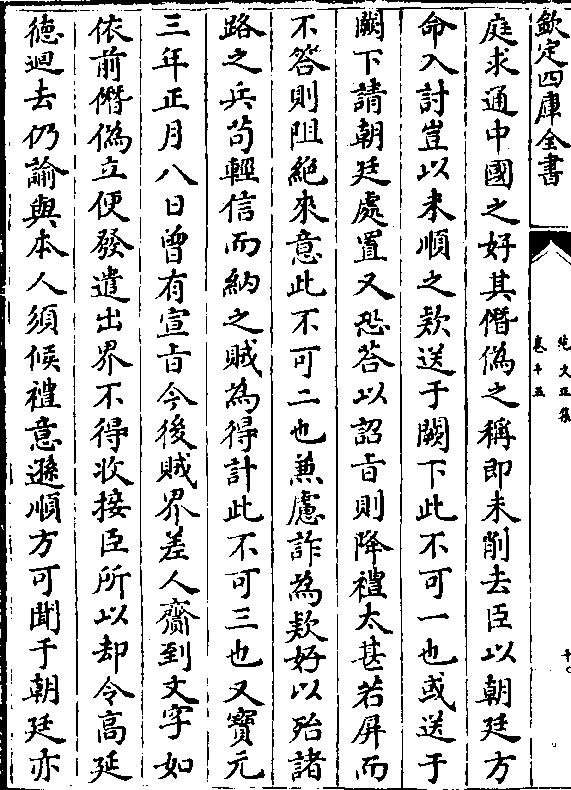 欽定四庫全書
范文正集
卷十五
庭求通中國之好其僭偽之稱即未削去臣以朝廷方
命入討豈以未順之款送于闕下此不可一也或送于
闕下請朝廷處置又恐荅以詔㫖則降禮太甚若屏而
不答則阻絶來意此不可二也兼慮詐為款好以殆諸
路之兵苟輕信而納之賊為得計此不可三也又寳元
三年正月八日曽有宣㫖今後賊界差人齎到文字如
依前僭偽立便發遣出界不得收接臣所以却令高延
徳迴去仍諭與本人須候禮意遜順方可聞于朝廷亦